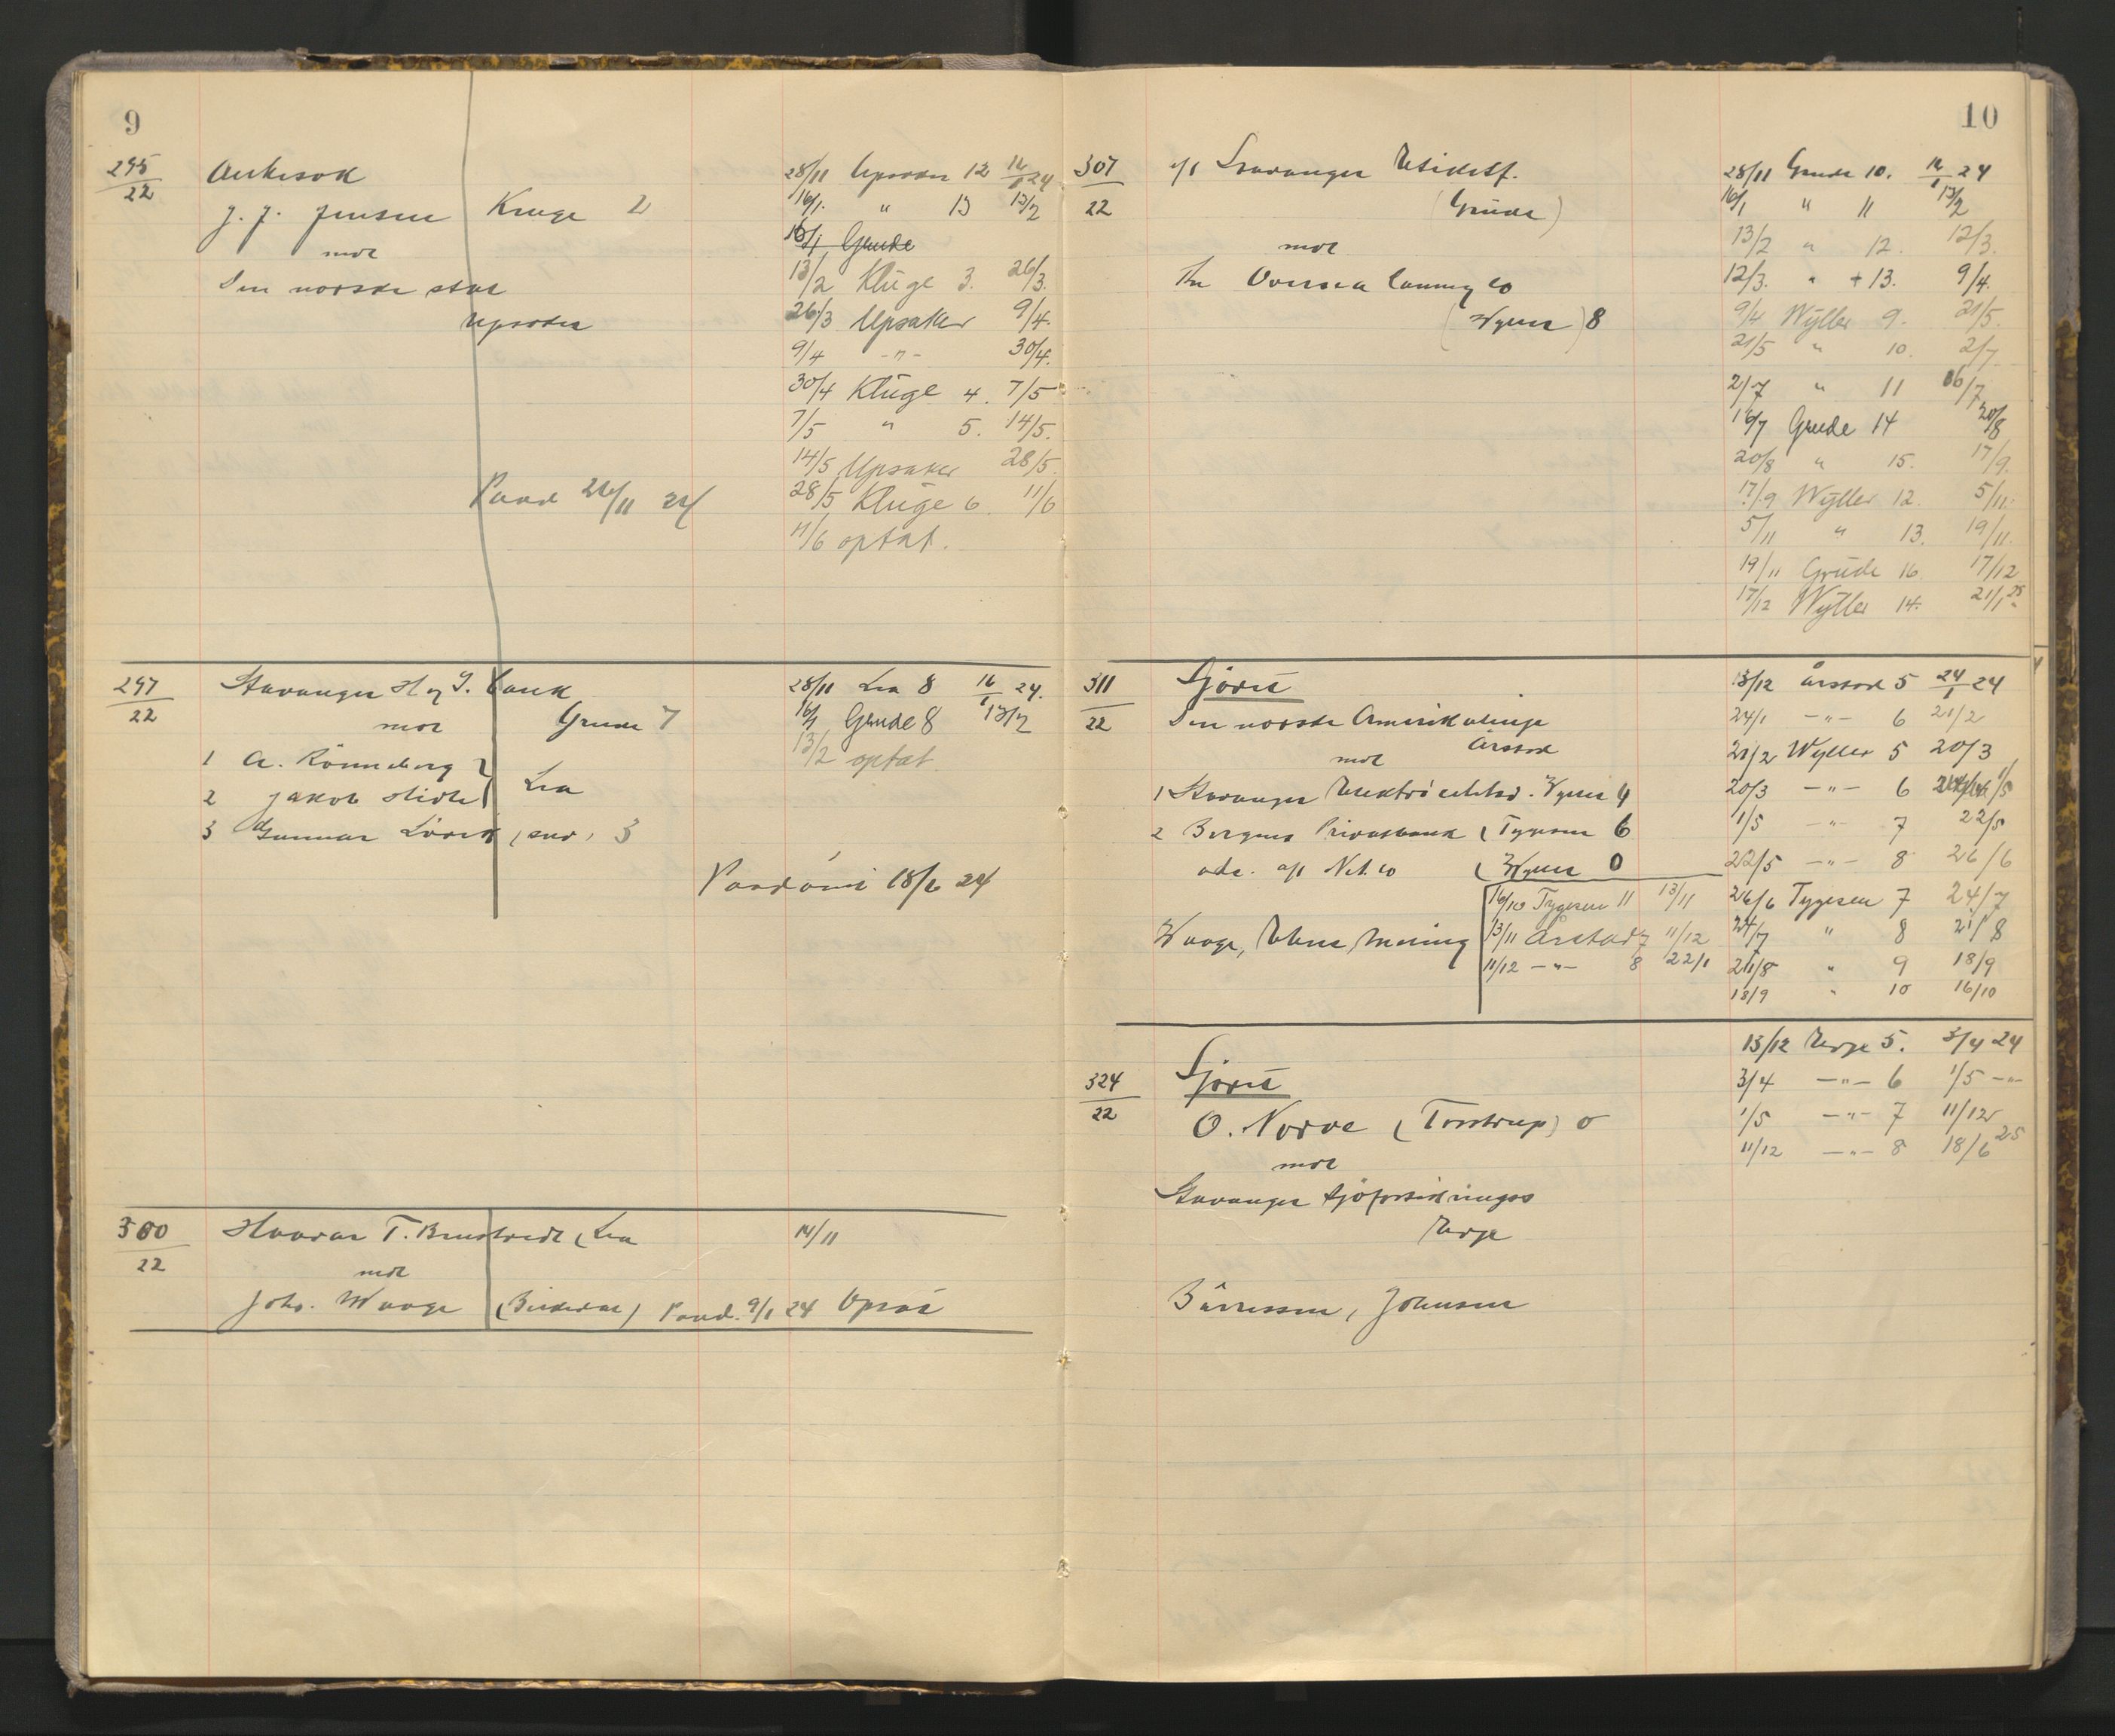 9
295/22
J. J. Jensen Kluge 2
mot
Den norske stat
Upsaker
28/11 Upsaker 12 16/1 24
16/1 " 13 13/2
16/1 Grude
13/2 Kluge 3. 26/3.
26/3 Upsaker 9/4.
9/4 -"- 30/4.
30/4 Kluge 4. 7/5
7/5 " 5. 14/5.
14/5 Upsaker 28/5.
28/5 Kluge 6 11/6
11/6 optat.
297/22
Stavanger H og I. bank
mot Grude 7
1 A. Rönneberg
2 Jakob Lea
3 Gunnar
28/11 Lea 8 16/1 24.
16/1 Grude 8 13/2
13/2 optat.
300/22
T. Lea
mot
Johs. Waage 9/1 24
14/11
10
307/22
a/s Stavanger
(Grude)
mot
The Oversea Canning Co
(Wyller) 8
28/11 Grude 10. 16/1 24
16/1 " 11 13/2
13/2 " 12. 12/3.
12/3. " + 13. 9/4.
9/4 Wyller 9. 21/5.
21/5 " 10. 2/7.
2/7 " 11 16/7
16/7 Grude 14 20/8
20/8 " 15. 17/9.
17/9 Wyller 12. 5/11.
5/11 " 13. 19/11.
19/11 Grude 16 17/12
17/12 Wyller 14. 21/1 25
311/22
Sjöret
Den norske Amerikalinje
Årstad
mot
1 Stavanger Wyller 4
2 Bergens Privatbank (Tygesen 6
(Wyller 0
16/10 Tygesen 11 13/11
13/11 Årstad 7 11/12
11/12 -"- 8 22/1
13/12 Årstad 5 24/1 24
24/1 -"- 6 21/2
21/2 Wyller 5 20/3
20/3 -"- 6 1/5
1/5 -"- 7 22/5
22/5 -"- 8 26/6
26/6 Tygesen 7 24/7
24/7 " 8 21/8
21/8 " 9 18/9
18/9 " 10 16/10
324/22
Sjöret
O. Norve (Torstrup) 0
mot
Stavanger Sjöforsikringss
13/12 5. 3/4 24
3/4 -"- 6 1/5 -"-
1/5 -"- 7 11/12
11/12 -"- 8 18/6 25
Johnsen